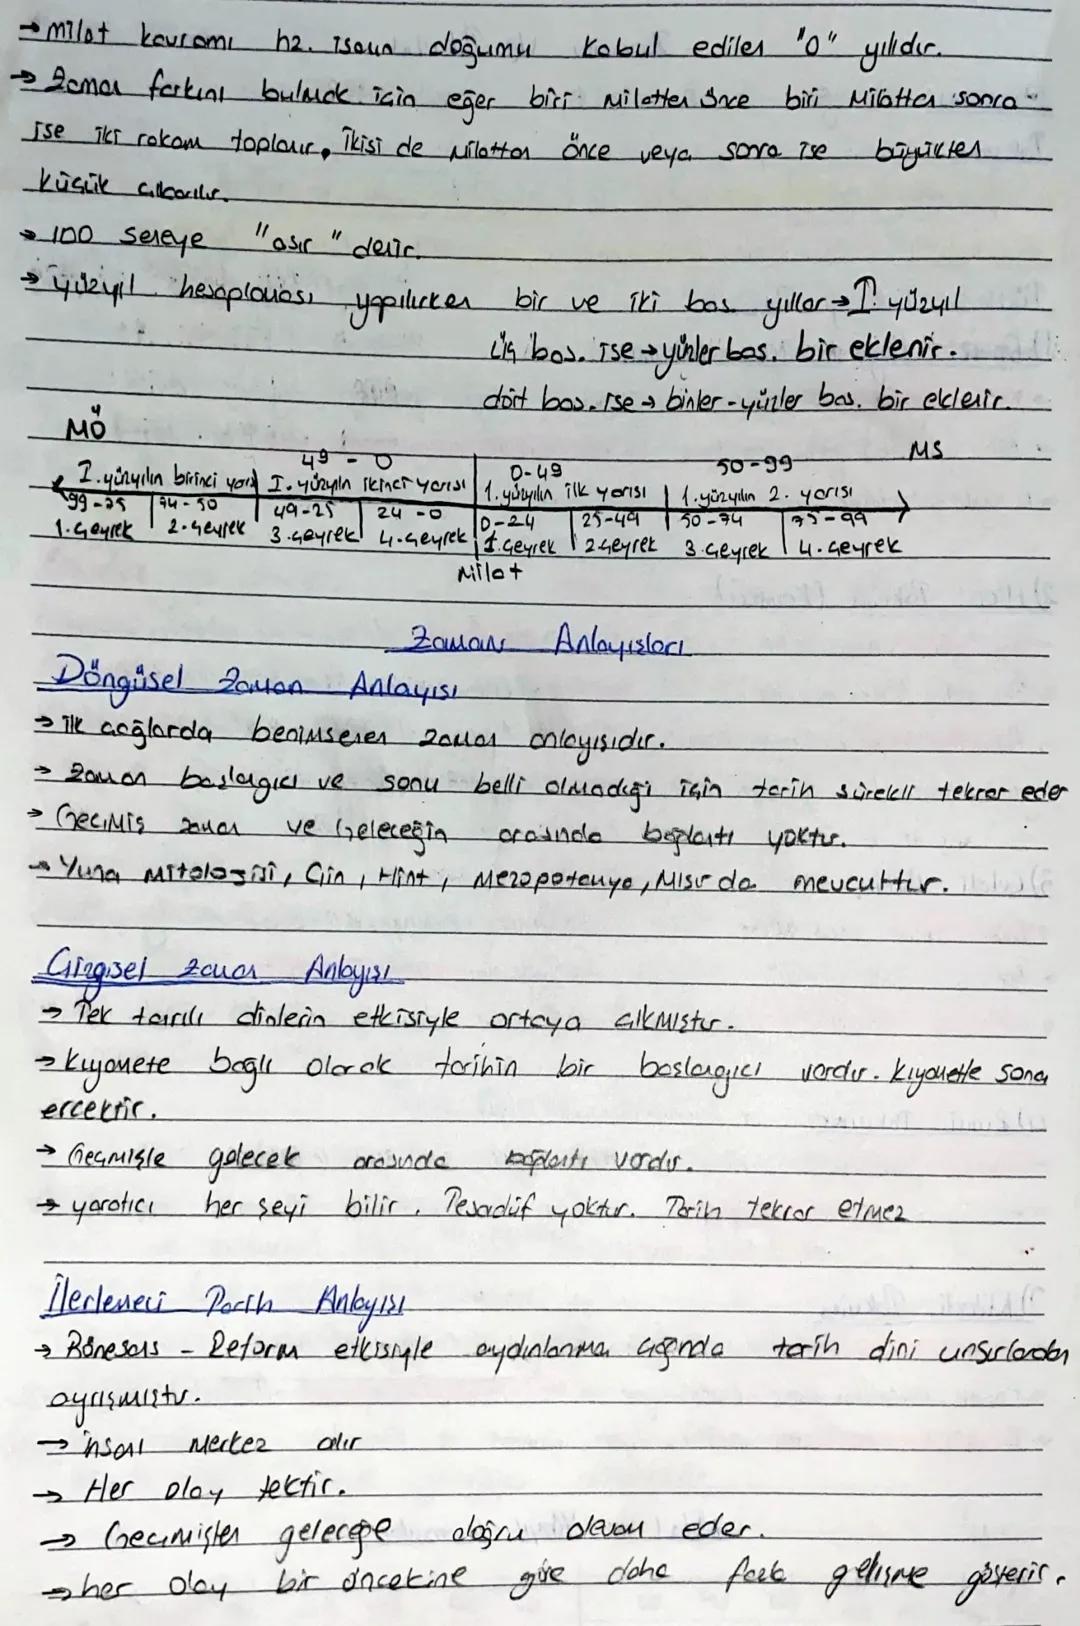 → milat kavramı hz. isanın doğumu kabul edilen "0" yılıdır.
→ Zaman farkını bulmak için eğer biri Milattan Önce biri Milattan sonra
ise iki rakam toplanır, İkisi de Milattan Önce veya sonra ise büyükten
küçük çıkarılır.
→ 100 seneye "asır" denir.
→ yüzyıl hesaplaması yapılırken bir ve iki bas. yıllar → I. yüzyıl
üç bas. ise → yüzler bas. bir eklenir.
dört bas. ise → binler-yüzler bas. bir eklenir.
MÖ
MS
49 - 0
0-49
50-99
I. yüzyılın birinci yarısı
I. yüzyılın ikinci yarısı
1. yüzyılın ilk yarısı
1. yüzyılın 2. yarısı
99-75
74-50
49-25
24-0
0-24
25-49
50-74
75-99
1. çeyrek
2. çeyrek
3. çeyrek
4. çeyrek
1. çeyrek
2 çeyrek
3. çeyrek
4. çeyrek
Milat
Zaman Anlayışları
Döngüsel Zaman Anlayısı
→ ilk çağlarda benimsenen zaman anlayışıdır.
→ Zaman baslangıcı ve sonu belli olmadığı için tarih sürekli tekrar eder
→ Geçmiş zaman ve Geleceğin arasında bağlantı yoktur.
→ Yunan Mitolojisi, Çin, Hint, Mezopotamya, Mısır da mevcuttur.
Çizgisel Zaman Anlayışı
→ Tek tanrılı dinlerin etkisiyle ortaya çıkmıştır.
→ Kıyamete bağlı olarak tarihin bir baslangıcı vardır. kıyametle sona
ercektir.
→ Geçmişle gelecek arasında bağlantı vardır.
→ yaratıcı her şeyi bilir. Tesadüf yoktur. Tarih tekrar etmez
İlerlemeci Tarih Anlayışı
→ Rönesans - Reform etkisiyle aydınlanma çağında tarih dini unsurlardan
ayrışmıştır.
→ insanı Merkez alır
→ Her olay tektir.
→ Geçmişten geleceğe doğru devam eder.
→ her olay bir öncekine göre daha fazla gelişme gösterir.